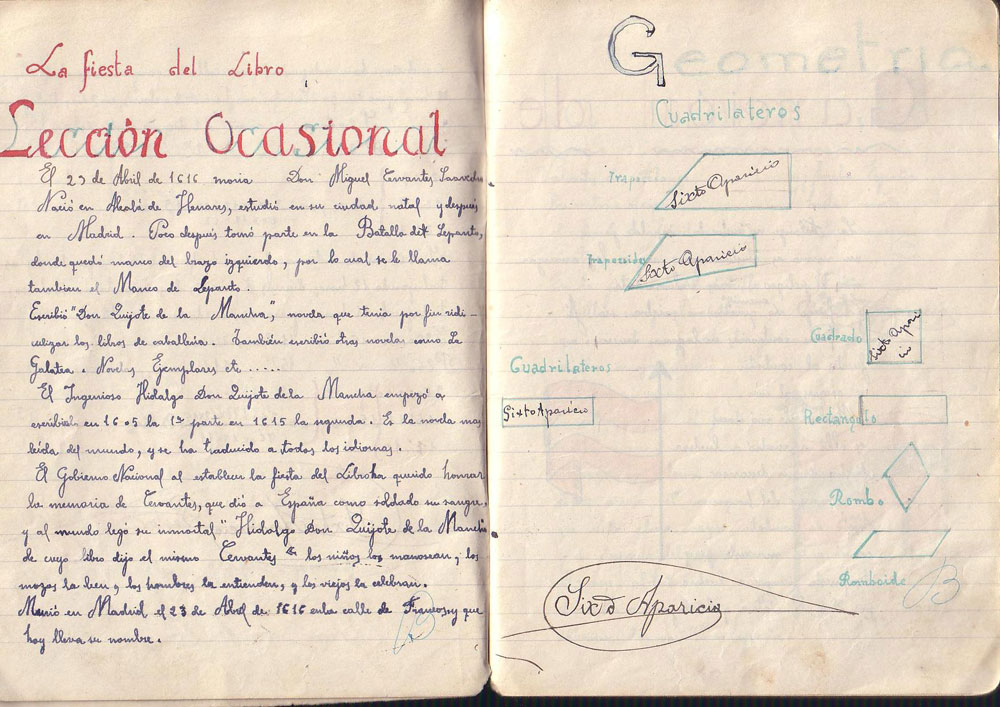 La fiesta del Libro
Lección Ocasional
El 23 de Abril de 1616 moria Don Miguel Cervantes Saavedra
Nació en Alcalá de Henares, estudió en su ciudad natal y despues
en Madrid. Poco despues tomó parte en la Batalla de Lepanto,
donde quedó manco del brazo izquierdo, por lo cual se le llama
tambien el Manco de Lepanto.
Escribió "Don Quijote de la Mancha", novela que tenia por fin ridi-
culizar los libros de caballeria. También escribió otras novelas como La
Galatea. Novelas Ejemplares etc .....
El Ingenioso Hidalgo Don Quijote de la Mancha empezó a
escribir en 1605 la 1ª parte en 1615 la segunda. Es la novela mas
leida del mundo, y se ha traducido a todos los idiomas.
El Gobierno Nacional al establecer la fiesta del Libro ha querido honrar
la memoria de Cervantes, que dió a España como soldado su sangre,
y al mundo legó su inmortal "Hidalgo Don Quijote de la Mancha
de cuyo libro dijo el mismo Cervantes los niños los manosean, los
mozos la leen, los hombres la entienden, y los viejos la celebran.
Murió en Madrid el 23 de Abril de 1616 en la calle de Francos y que
hoy lleva su nombre.
B
Geometria
Cuadrilateros
Trapecio
Sixto Aparicio
Trapezoides
Sixto Aparicio
Cuadrado
Sixto Apari
io
Cuadrilateros
Sixto Aparicio
Rectangulo
Rombo
Romboide
B
Sixto Aparicio